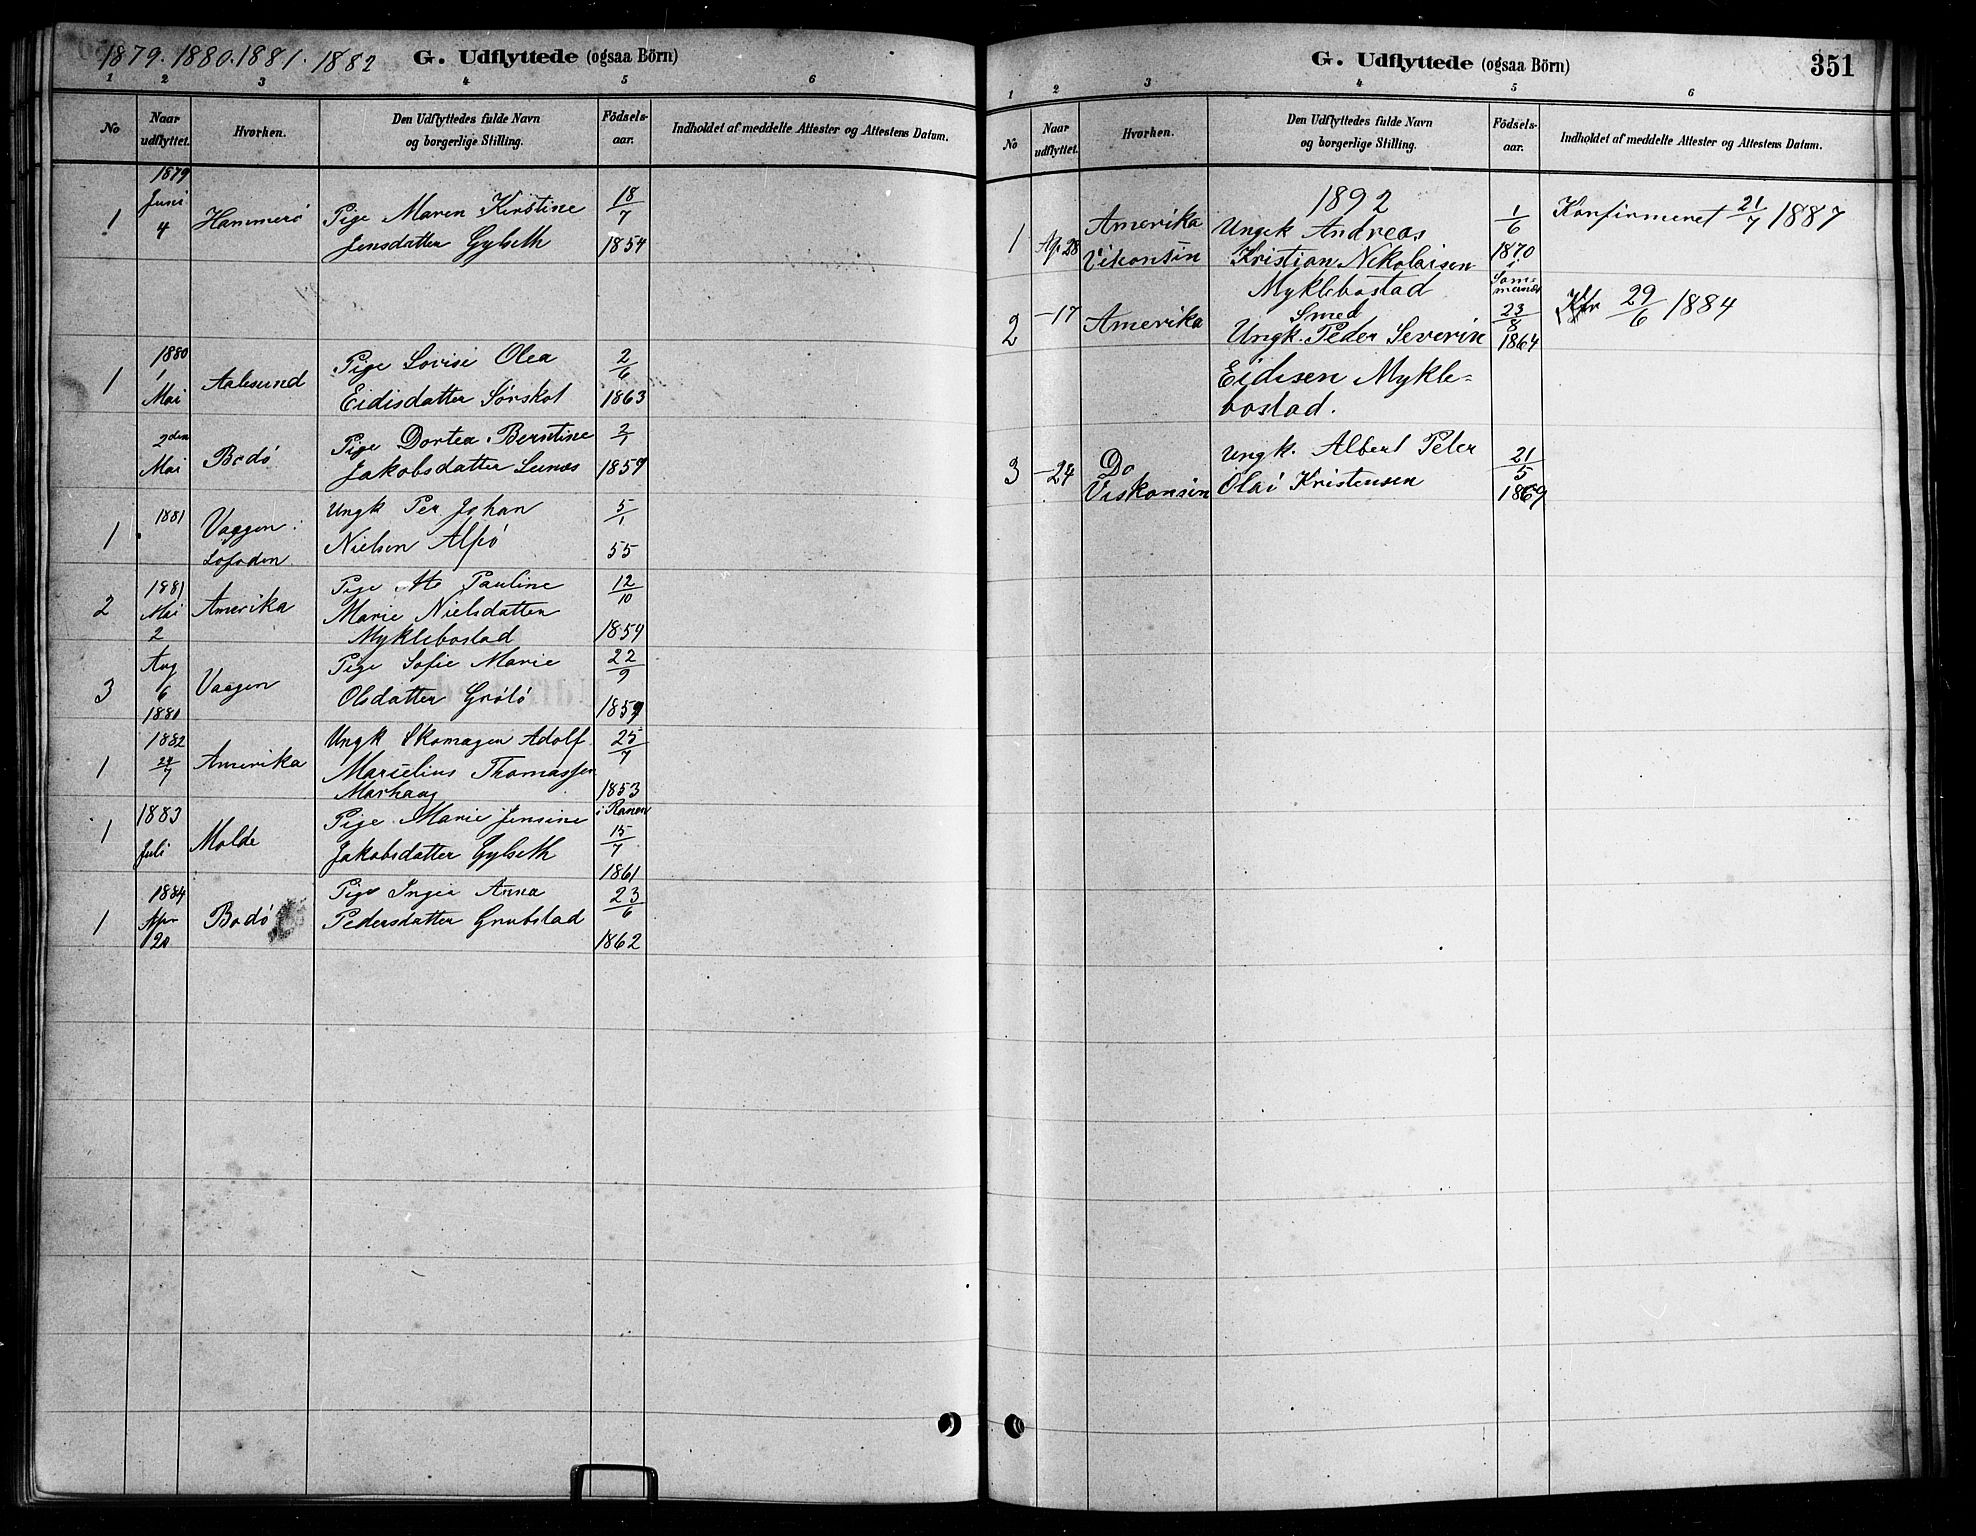 1879. 1880. 1881. 1882 G. Udflyttede (ogsaa Börn)
1 2 3 4 5 6
No Naar udflyttet. Hvorhen. Den Udflyttedes fulde Navn og borgerlige Stilling. Födsels-aar. Indholdet af meddelte Attester og Attestens Datum.
1879
1 Juni 4 Hammerö Pige Maren Kirstine 18/7
Jensdatter Gylseth 1854
1880
1 1 Mai Aalesund Pige Lovise Olea 2/6
Eidisdatter Sørskot 1863
2den Mai Bodö Pige Dortea Berntine 2/1
Jakobsdatter Lunæs 1859
1 1881 Vaagen Ungk Per Johan 5/1
Lofoden Nielsen Alsö 55
2 1881 Mai 2 Amerika Pige Pauline 12/10
Marie Nielsdatter
Myklebostad 1859
3 Aug 6 1880 Vaagen Pige Sofie Marie 22/9
Olsdatter Grölö 1859
1 1882 24/7 Amerika Ungk Skomager Adolf 25/7
Marselius Thomassen
Marhaug 1853
i Ranen
1 1883 Juli Molde Pige Marie Jensine 15/7
Jakobsdatter Gylseth 1861
1 1884 Apr 20 Bodö Pige Inger Anna 23/6
Pedersdatter Grubstad 1862
G. Udflyttede (ogsaa Börn) 351
1 2 3 4 5 6
No Naar udflyttet. Hvorhen. Den Udflyttedes fulde Navn og borgerlige Stilling. Födsels-aar. Indholdet af meddelte Attester og Attestens Datum.
1892
1 Ap 28 Amerika Ungk Andreas 1/6 Konfirmeret 21/7 1887
Viskonsin Kristian Nikolaisen 1870
Myklebostad i
2 -17 Amerika Smed 23/8 Kfr 29/6 1884
Ungk. Peder Severin 1864
Eidisen Mykle-
bostad.
3 -24 Do Ungk. Albert Peter 21/5
Viskonsin Olai Kristensen 1869